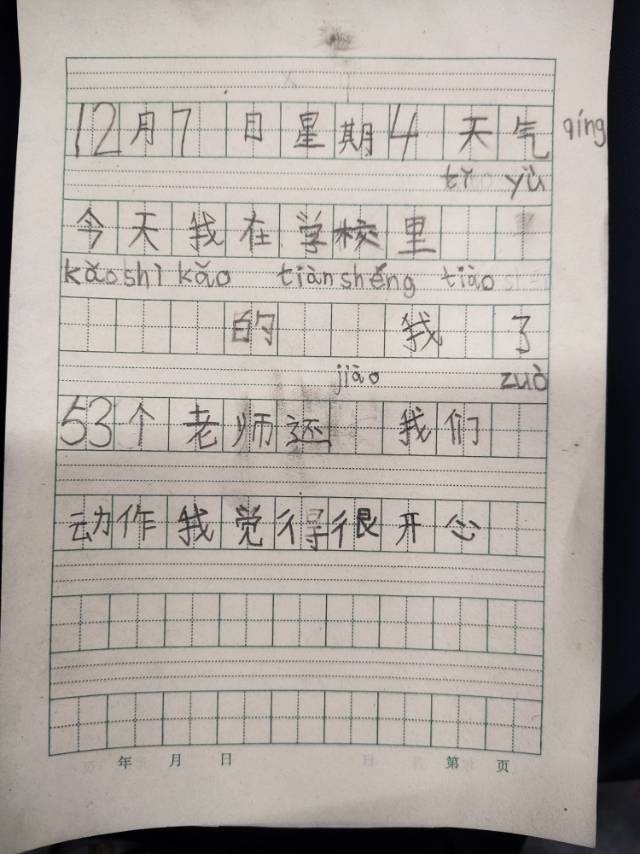 12月7日星期4天气 qíng
tǐ yù
今天我在学校里
kǎo shì kǎo tiàn shéng tiào
的 我 了
jiào zuò
53个老师还 我们
动作我觉得很开心
年 月 日 第 页